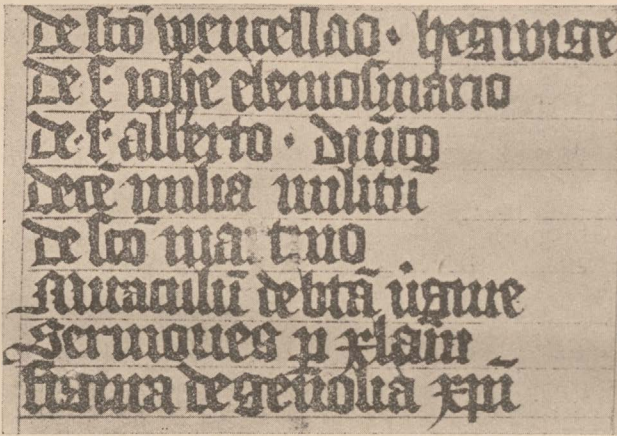 De sco wencellao · hegwige
De s· iohe elemosinario
De · s· alberto · Diuico
Dece milia militu
De sco martino
Miraculu de bta uigine
Sermones p xlam
figura de genolia xpi